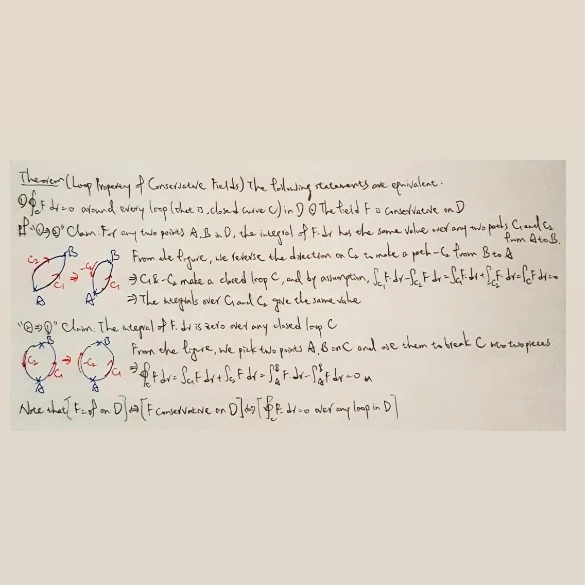 Theorem (Loop Property of Conservative Fields) The following statements are equivalent.
① ∮_C F·dr=0 around every loop (that is, closed curve C) in D ② The field F is conservative on D
Pf "①⇒②" Claim: For any two points A, B in D, the integral of F·dr has the same value over any two paths C₁ and C₂ from A to B.
From the figure, we reverse the direction on C₂ to make a path -C₂ from B to A
⇒ C₁ & -C₂ make a closed loop C, and by assumption, ∫_C₁ F·dr - ∫_C₂ F·dr = ∫_C₁ F·dr + ∫_-C₂ F·dr = ∫_C F·dr = 0
⇒ The integrals over C₁ and C₂ give the same value
C₂ B C₁ A ⇒ -C₂ B C₁ A
"②⇒①" Claim: The integral of F·dr is zero over any closed loop C
From the figure, we pick two points A, B on C and use them to break C into two pieces
⇒ ∮_C F·dr = ∫_C₁ F·dr + ∫_C₂ F·dr = ∫_A^B F·dr - ∫_A^B F·dr = 0
B C₂ C₁ A ⇒ B -C₂ C₁ A
Note that [F=∇f on D] ⇔ [F conservative on D] ⇔ [∮_C F·dr=0 over any loop in D]